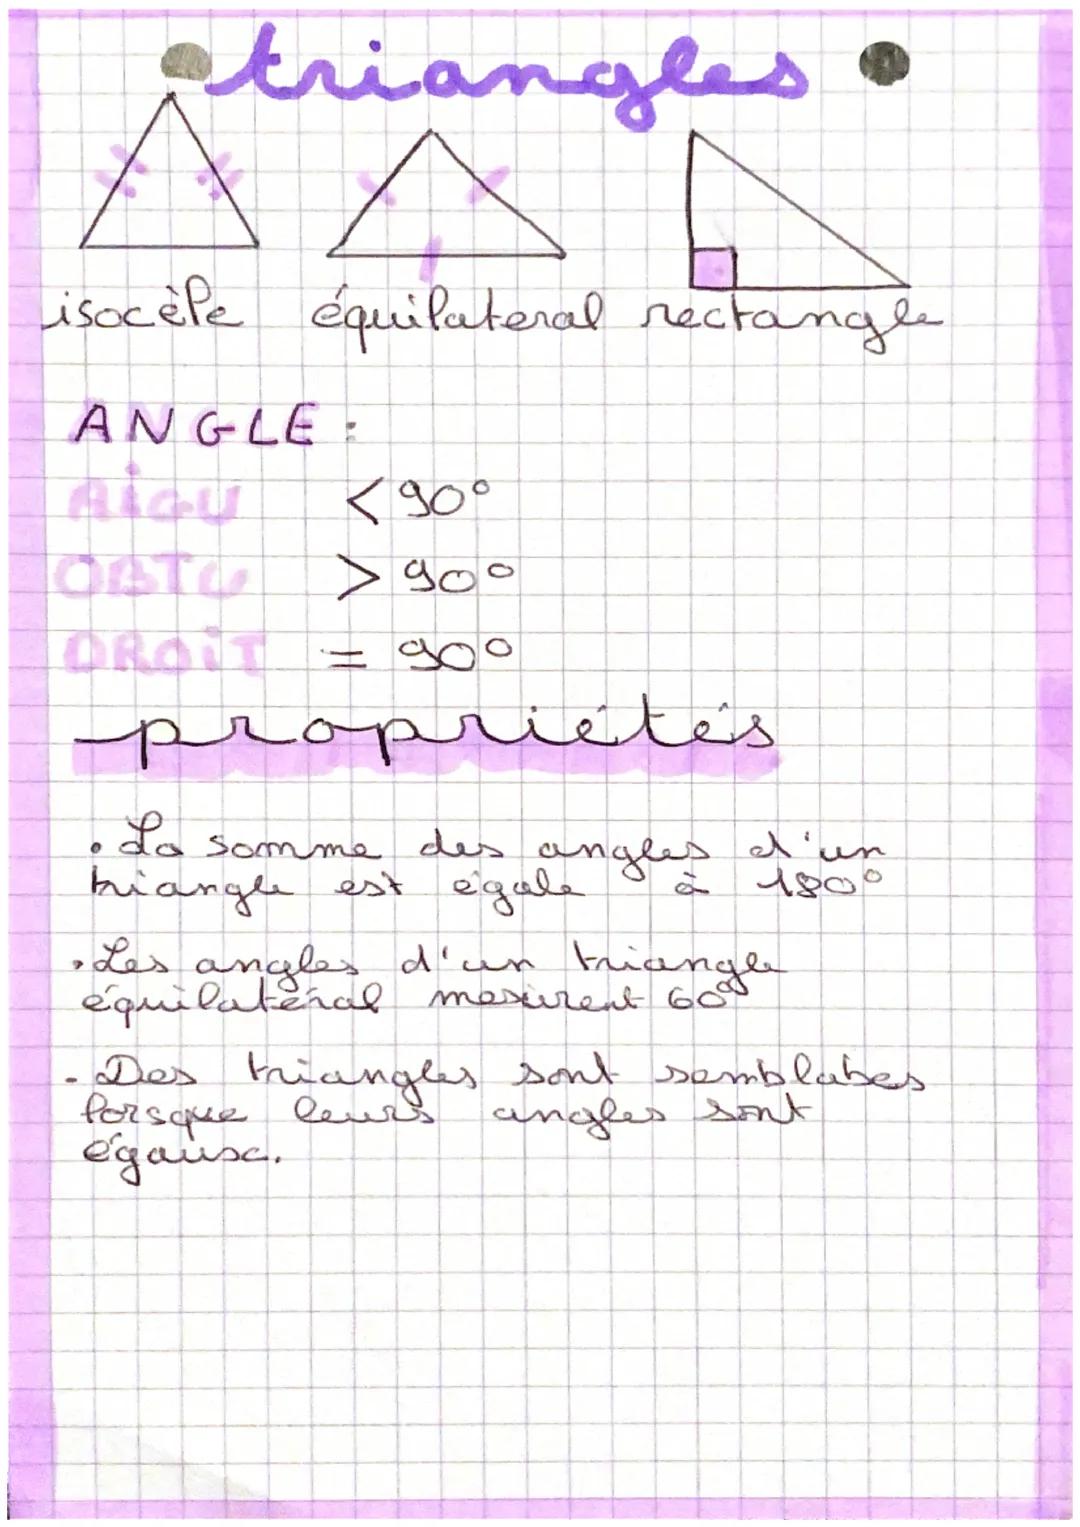 triangles
isocèle équilateral rectangle
ANGLE :
AiGU < 90°
OBTU > 90°
DROiT = 90°
propriétés
. La somme des angles d'un
triangle est égale à 180°
. Les angles d'un triangle
équilatéral mesurent 60°
. Des triangles sont semblabes
lorsque leurs angles sont
égaux.